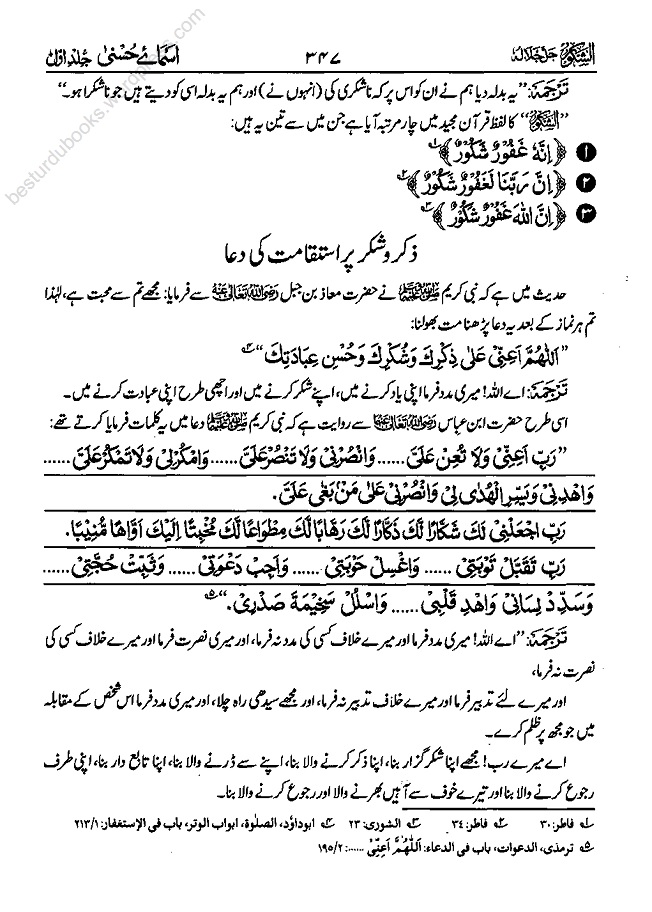 الشكور جل جلالہ ۳۴۷ اسمائے حسنیٰ جلد اول
ترجمہ: ”یہ بدلہ دیا ہم نے ان کو اس پر کہ ناشکری کی (انہوں نے) اور ہم یہ بدلہ اسی کو دیتے ہیں جو ناشکرا ہو۔“
”الشَّكُوْرُ“ کا لفظ قرآن مجید میں چار مرتبہ آیا ہے جن میں سے تین یہ ہیں:
۱ ﴿اِنَّهٗ غَفُوْرٌ شَكُوْرٌ﴾ ؎۱
۲ ﴿اِنَّ رَبَّنَا لَغَفُوْرٌ شَكُوْرٌ﴾ ؎۲
۳ ﴿اِنَّ اللّٰهَ غَفُوْرٌ شَكُوْرٌ﴾ ؎۳
ذکر و شکر پر استقامت کی دعا
حدیث میں ہے کہ نبی کریم ﷺ نے حضرت معاذ بن جبل رضی اللہ تعالیٰ عنہ سے فرمایا: مجھے تم سے محبت ہے، لہٰذا
تم ہر نماز کے بعد یہ دعا پڑھنا مت بھولنا:
”اَللّٰهُمَّ اَعِنِّيْ عَلٰى ذِكْرِكَ وَشُكْرِكَ وَحُسْنِ عِبَادَتِكَ“ ؎۴
ترجمہ: اے اللہ! میری مدد فرما اپنی یاد کرنے میں، اپنے شکر کرنے میں اور اچھی طرح اپنی عبادت کرنے میں۔
اسی طرح حضرت ابن عباس رضی اللہ تعالیٰ عنہ سے روایت ہے کہ نبی کریم ﷺ دعا میں یہ کلمات فرمایا کرتے تھے:
”رَبِّ اَعِنِّيْ وَلَا تُعِنْ عَلَيَّ ...... وَانْصُرْنِيْ وَلَا تَنْصُرْ عَلَيَّ ...... وَامْكُرْلِيْ وَلَا تَمْكُرْ عَلَيَّ ......
وَاهْدِنِيْ وَيَسِّرِ الْهُدٰى لِيْ وَانْصُرْنِيْ عَلٰى مَنْ بَغٰى عَلَيَّ.
رَبِّ اجْعَلْنِيْ لَكَ شَكَّارًا لَكَ ذَكَّارًا لَكَ رَهَّابًا لَكَ مِطْوَاعًا لَكَ مُخْبِتًا اِلَيْكَ اَوَّاهًا مُنِيْبًا.
رَبِّ تَقَبَّلْ تَوْبَتِيْ ...... وَاغْسِلْ حَوْبَتِيْ ...... وَاَجِبْ دَعْوَتِيْ ...... وَثَبِّتْ حُجَّتِيْ ......
وَسَدِّدْ لِسَانِيْ وَاهْدِ قَلْبِيْ ...... وَاسْلُلْ سَخِيْمَةَ صَدْرِيْ.“ ؎۵
ترجمہ: ”اے اللہ! میری مدد فرما اور میرے خلاف کسی کی مدد نہ فرما، اور میری نصرت فرما اور میرے خلاف کسی کی
نصرت نہ فرما،
اور میرے لئے تدبیر فرما اور میرے خلاف تدبیر نہ فرما، اور مجھے سیدھی راہ چلا، اور میری مدد فرما اس شخص کے مقابلہ
میں جو مجھ پر ظلم کرے۔
اے میرے رب! مجھے اپنا شکر گزار بنا، اپنا ذکر کرنے والا بنا، اپنے سے ڈرنے والا بنا، اپنا تابع دار بنا، اپنی طرف
رجوع کرنے والا بنا اور تیرے خوف سے آہیں بھرنے والا اور رجوع کرنے والا بنا۔
؎۱ فاطر: ۳۰ ؎۲ فاطر: ۳۴ ؎۳ الشوری: ۲۳ ؎۴ ابوداؤد، الصلوة، ابواب الوتر، باب فی الإستغفار: ۲۱۳/۱
؎۵ ترمذی، الدعوات، باب فی الدعاء: اَللّٰهُمَّ اَعِنِّيْ ......: ۱۹۵/۲
besturdubooks.wordpress.com